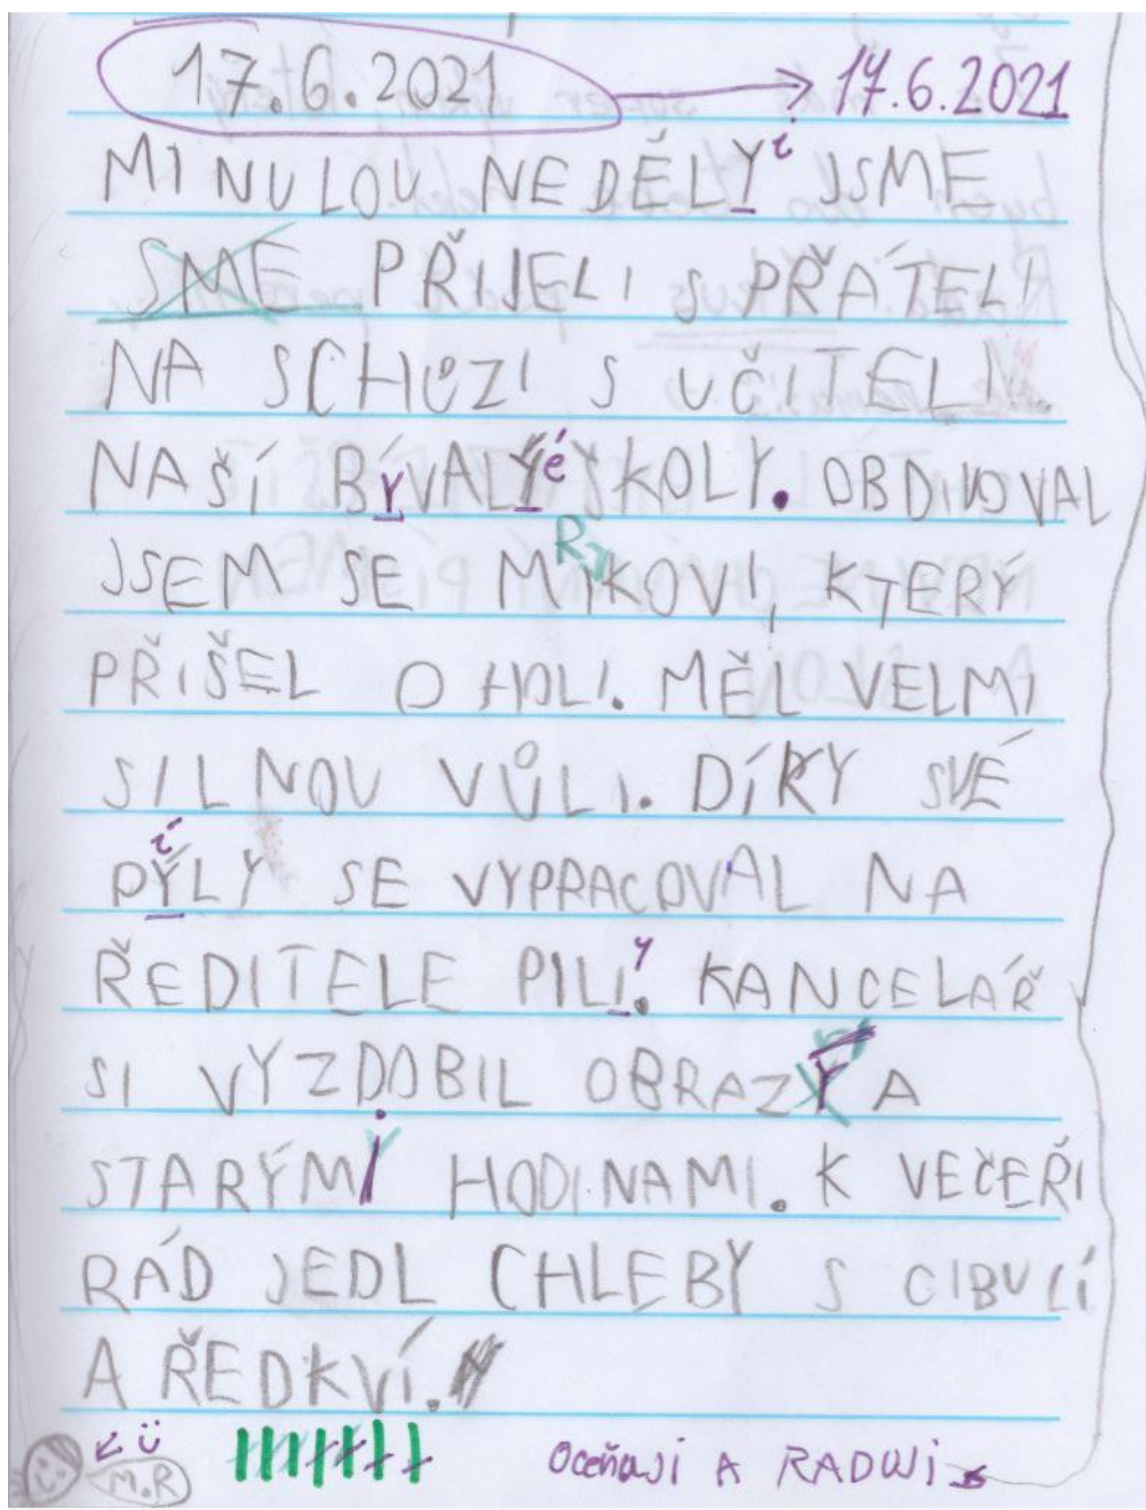 17.6.2021 → 14.6.2021
MINULOU NEDĚLY i JSME
SME PŘIJELI S PŘÁTELI
NA SCHŮZI S UČITELI
NAŠÍ BÝVALÝ é ŠKOLY. OBDIVOVAL
JSEM SE MIRKOVI, KTERÝ
PŘIŠEL O HOLI. MĚL VELMI
SILNOU VŮLI. DÍKY SVÉ
PÝLY í SE VYPRACOVAL NA
ŘEDITELE PILI y. KANCELÁŘ
SI VYZDOBIL OBRAZY A
STARÝMI HODINAMI. K VEČEŘI
RÁD JEDL CHLEBY S CIBULÍ
A ŘEDKVÍ.
M.R OCEŇUJI A RADUJI